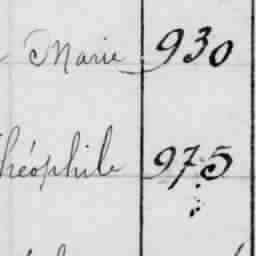 Marie 930
Théophile 975